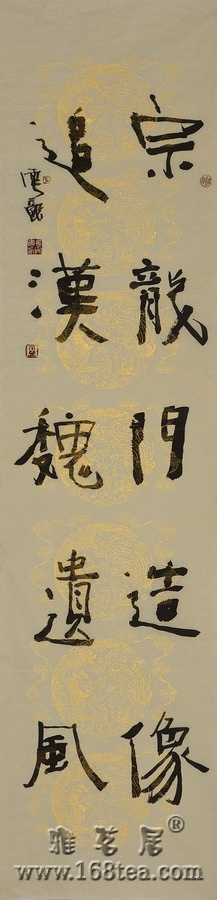 宗龍門造像
追漢魏遺風
雅茗居®
www.168tea.com